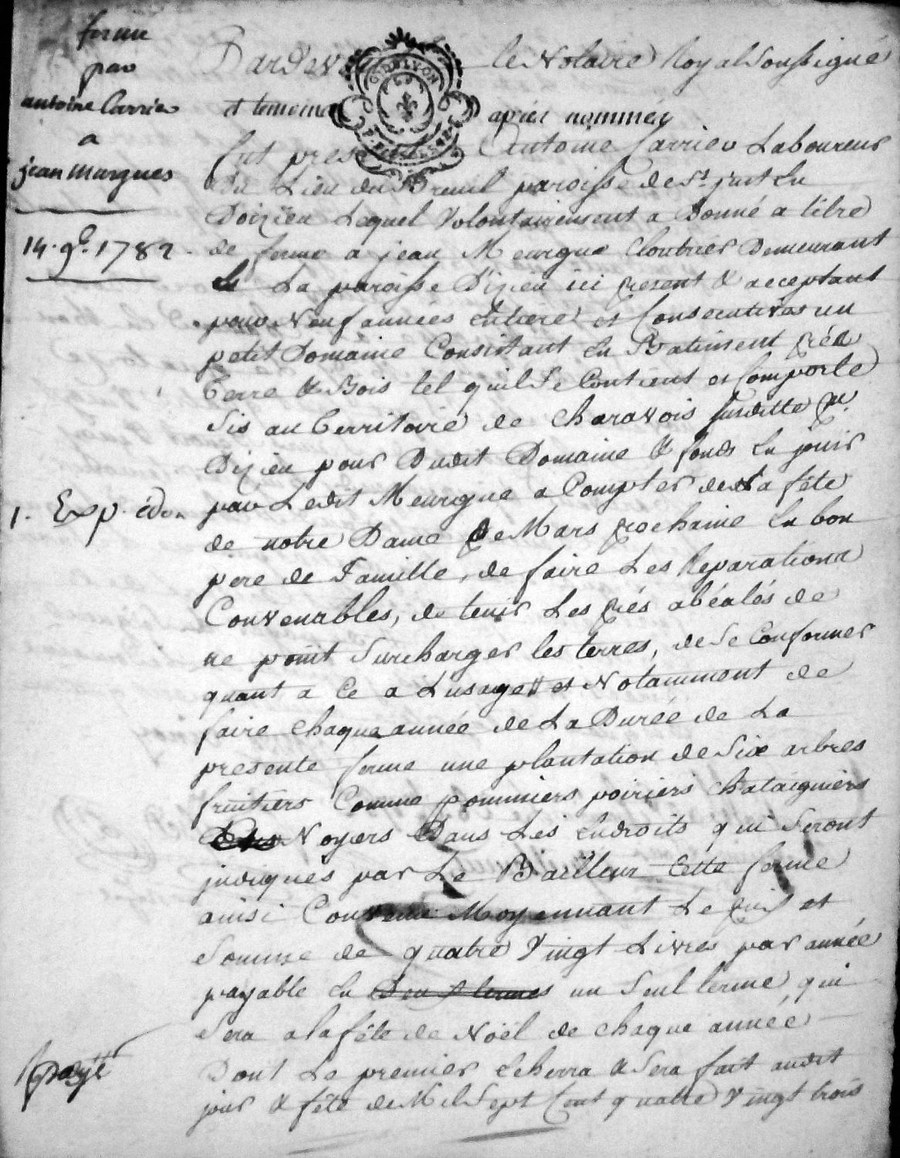 ferme
par
antoine Carrier
a
jean Marques
14. 9.e 1782
1. Exp. édon
payé
Pardev le Notaire Royal Soussigné
et temoins apres nommés
GN. DE LYON
fut pres Antoine Carrier Laboureur
Du Lieu du Breuil paroisse de St. just En
Doizieu Lequel Volontairement a Donné a titre
de ferme a jean Meurgue Cloutier Demeurant
La paroisse Dizieu ici present & acceptant
pour Neuf années Entiere et Consecutives un
petit Domaine Consistant En Batiment prés
Terre & Bois tel quil Se Contient et Comporte
Sis au Territoire de Charavois susditte pse.
Dizieu pour Dudit Domaine & fonds En jouir
par Ledit Meurgue a Compter de la fête
de notre Dame De Mars prochaine En bon
pere de Famille, de faire Les Reparations
Convenables, de tenir Les prés abéalés de
ne point Surcharger les terres, de Se Conformer
quant a Ce a Lusage et Notamment de
faire chaque année de La Durée de La
presente ferme une plantation de Six arbres
fruitiers Comme pommiers poiriers chataigniers
Noyers Dans Les Endroits qui Seront
indiqués par Le Bailleur Cette ferme
ainsi Convenue Moyennant Le prix et
Somme de quatre Vingt Livres par année
payable En Deux termes un Seul terme qui
Sera a la fête de Noël de Chaque année
Dont Le premier Echerra & Sera fait audit
jour & fête de Mil Sept Cent quatre Vingt trois